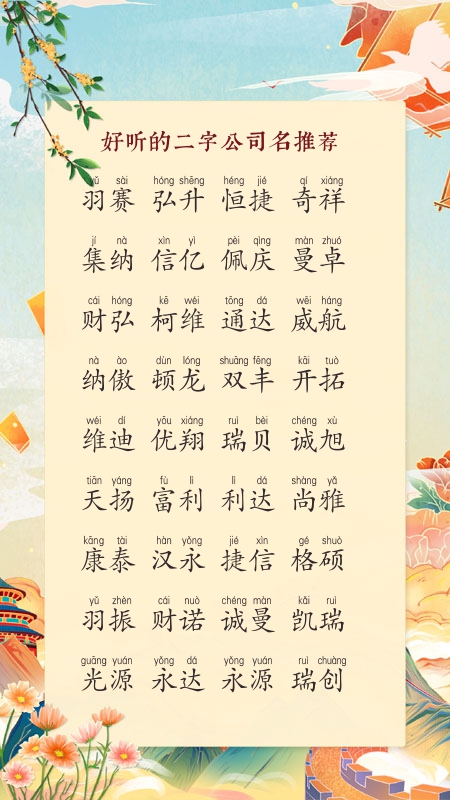 好听的二字公司名推荐
yǔ sài hóng shēng héng jié qí xiáng
羽赛 弘升 恒捷 奇祥
jí nà xìn yì pèi qìng màn zhuó
集纳 信亿 佩庆 曼卓
cái hóng kē wéi tōng dá wēi háng
财弘 柯维 通达 威航
nà ào dùn lóng shuāng fēng kāi tuò
纳傲 顿龙 双丰 开拓
wéi dí yōu xiáng ruì bèi chéng xù
维迪 优翔 瑞贝 诚旭
tiān yáng fù lì lì dá shàng yǎ
天扬 富利 利达 尚雅
kāng tài hàn yǒng jié xìn gé shuò
康泰 汉永 捷信 格硕
yǔ zhèn cái nuò chéng màn kǎi ruì
羽振 财诺 诚曼 凯瑞
guāng yuán yǒng dá yǒng yuán ruì chuàng
光源 永达 永源 瑞创